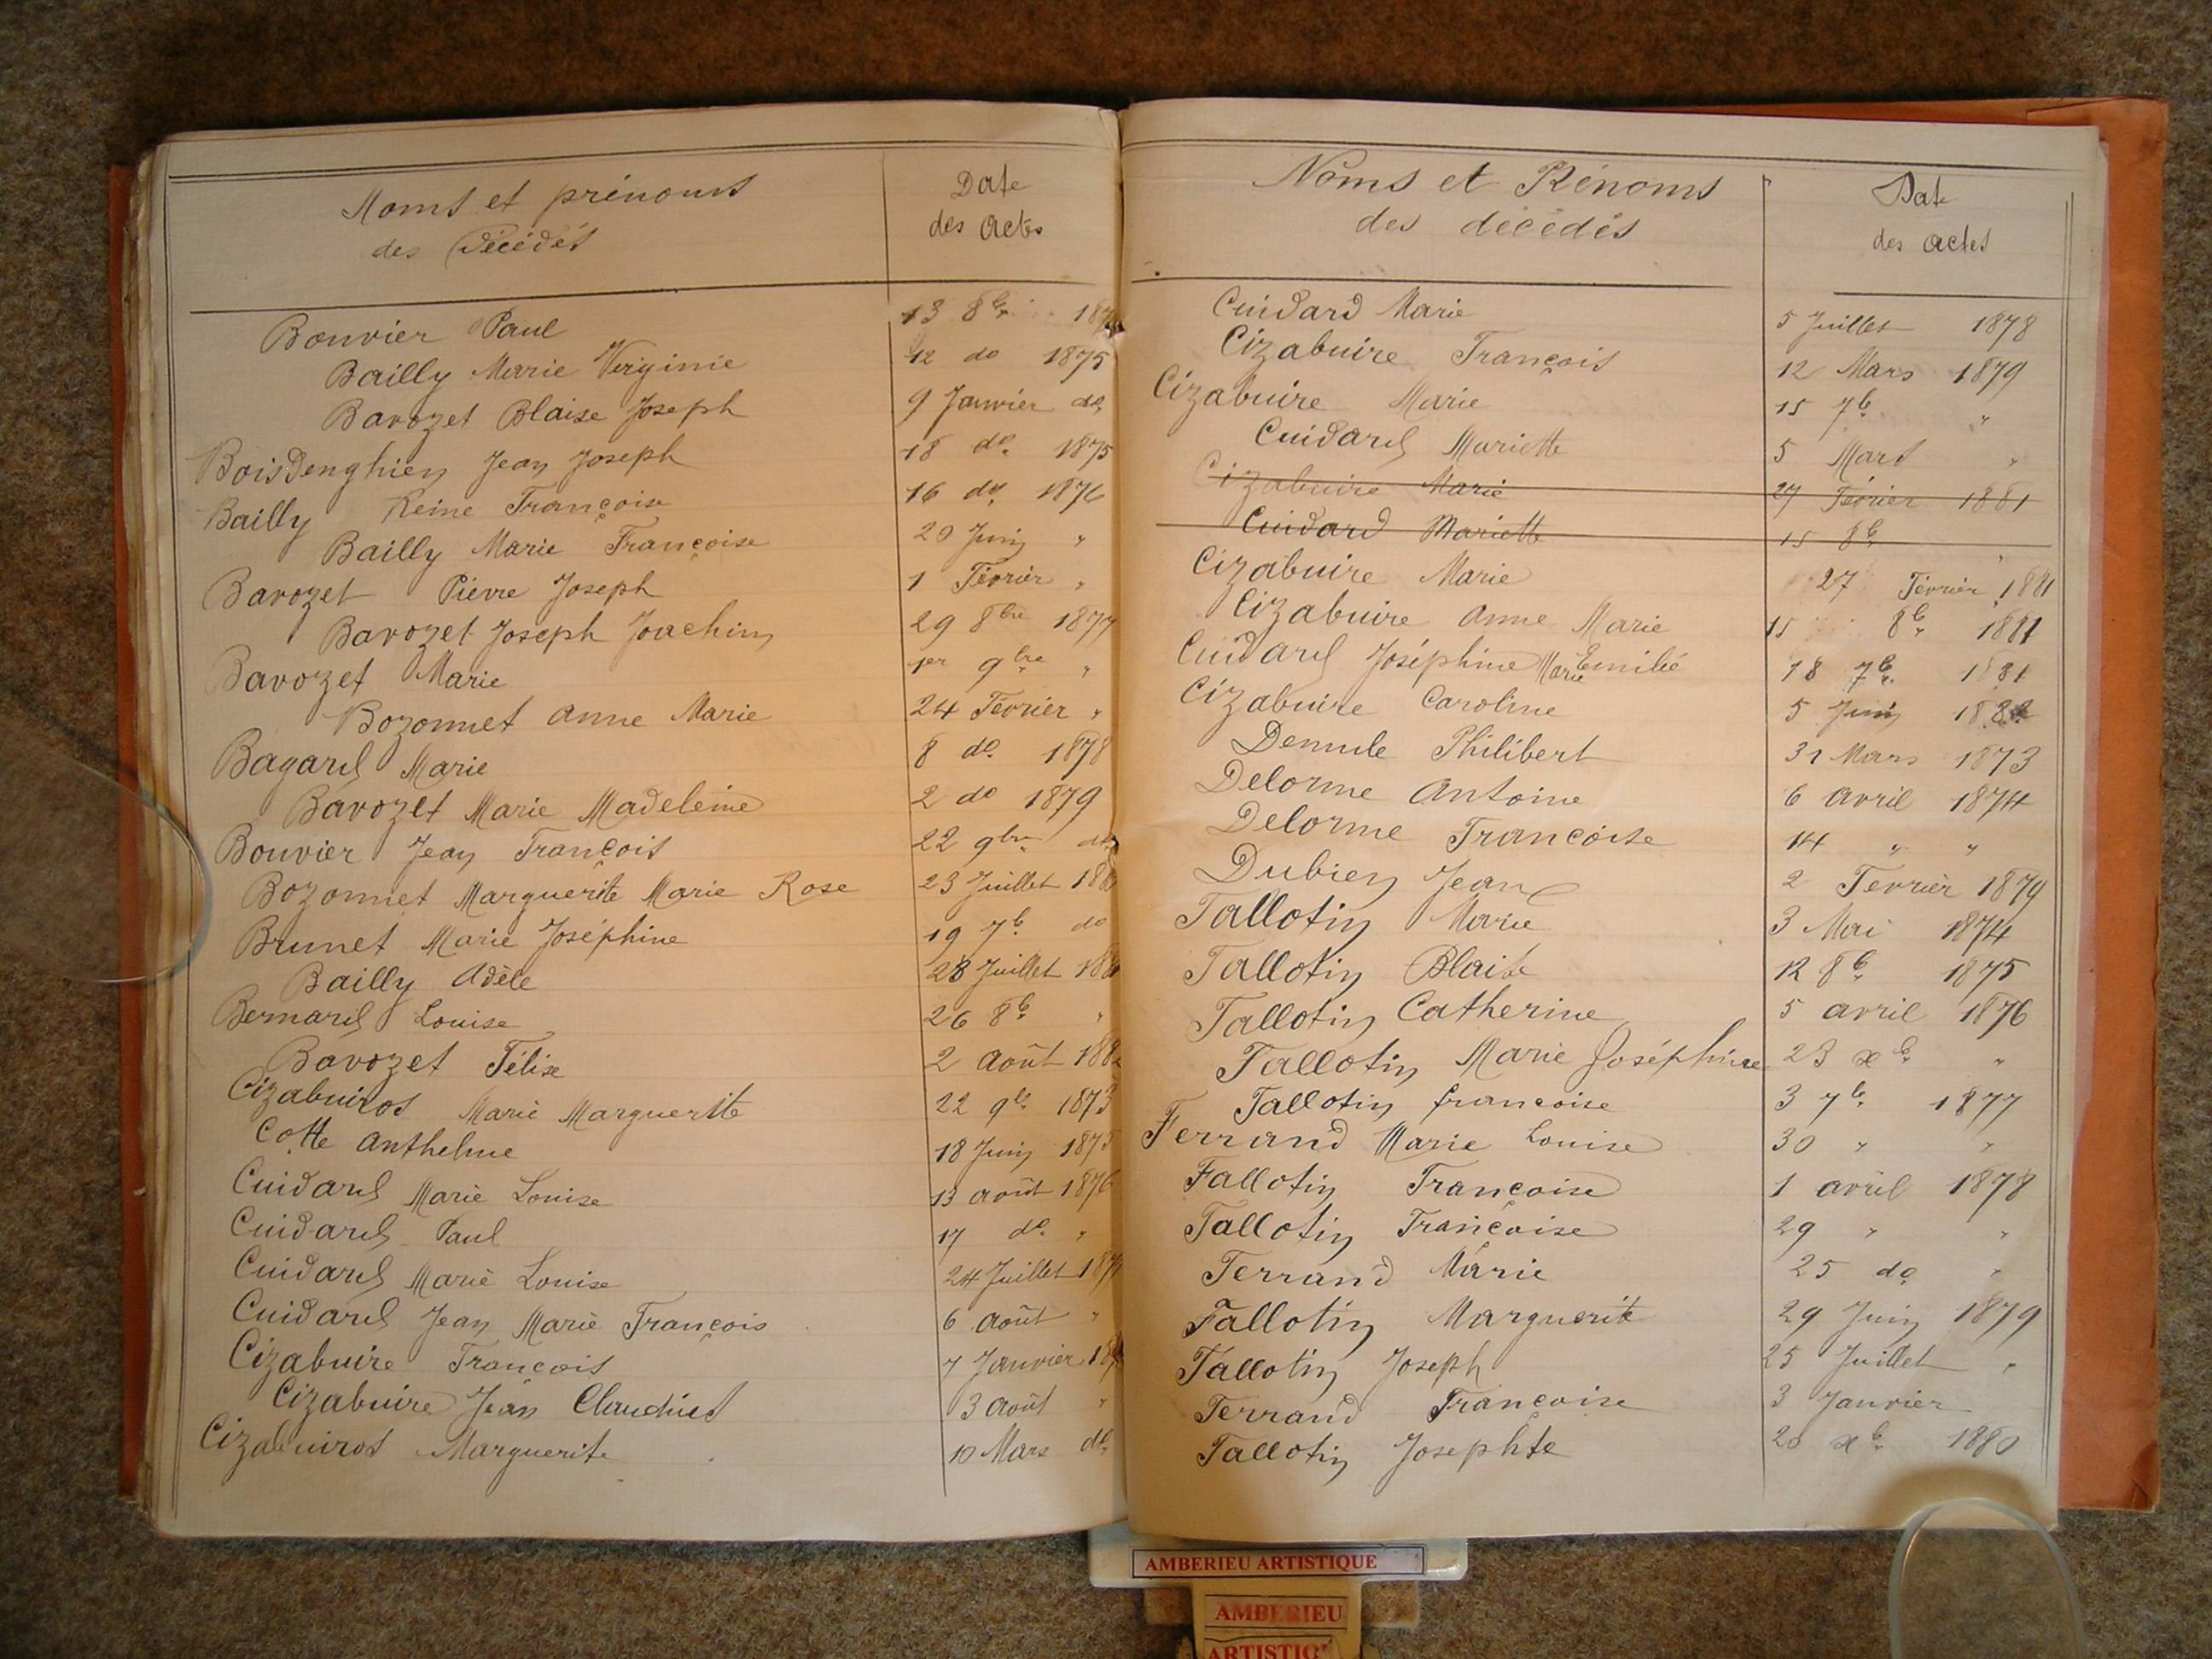 Noms et prénoms
des Décédés
Date
des Actes
Bouvier Paul 13 8b.
Bailly Marie Virginie 12 do 1875
Bavozet Blaise Joseph 9 Janvier do
Boisdenghien Jean Joseph 18 do. 1875
Bailly Reine Françoise 16 do. 1876
Bailly Marie Françoise 20 Juin "
Bavozet Pierre Joseph 1 Février "
Bavozet Joseph Joachim 29 8bre 1877
Bavozet Marie 1er 9bre "
Bozonnet Anne Marie 24 Février "
Bagard Marie 8 do. 1878
Bavozet Marie Madeleine 2 do 1879
Bouvier Jean François 22 9bre do
Bozonnet Marguerite Marie Rose 23 Juillet
Brunet Marie Joséphine 19 7b. do
Bailly Adèle 28 Juillet
Bernard Louise 26 8b. "
Bavozet Félise 2 Août
Cizabuiros Marie Marguerite 22 9b. 1873
Cotte Anthelme 18 Juin 1875
Cuidard Marie Louise 13 Août 1876
Cuidard Paul 17 do. "
Cuidard Marie Louise 24 Juillet
Cuidard Jean Marie François 6 Août "
Cizabuire François 7 Janvier
Cizabuire Jean Claudius 3 Août "
Cizabuiros Marguerite 10 Mars do.
Noms et Prénoms
des décédés
Date
des actes
Cuidard Marie 5 Juillet 1878
Cizabuire François 12 Mars 1879
Cizabuire Marie 15 7b. "
Cuidard Mariette 5 Mars "
Cizabuire Marie 27 Février 1881
Cuidard Mariette 15 8b. "
Cizabuire Marie 27 Février 1881
Cizabuire Anne Marie 15 8b. 1881
Cuidard Joséphine Marie Emilie 18 7b. 1881
Cizabuire Caroline 5 Juin 1882
Demule Philibert 31 Mars 1873
Delorme Antoine 6 Avril 1874
Delorme Françoise 14 " "
Dubien Jean 2 Février 1879
Fallotin Marie 3 Mai 1874
Fallotin Blaise 12 8b. 1875
Fallotin Catherine 5 avril 1876
Fallotin Marie Joséphine 23 xb. "
Fallotin françoise 3 7b. 1877
Ferrand Marie Louise 30 " "
Fallotin Françoise 1 avril 1878
Fallotin Françoise 29 " "
Ferrand Marie 25 do "
Fallotin Marguerite 29 Juin 1879
Fallotin Joseph 25 Juillet "
Ferrand Françoise 3 Janvier
Fallotin Josephte 20 xb. 1880
AMBERIEU ARTISTIQUE
AMBERIEU